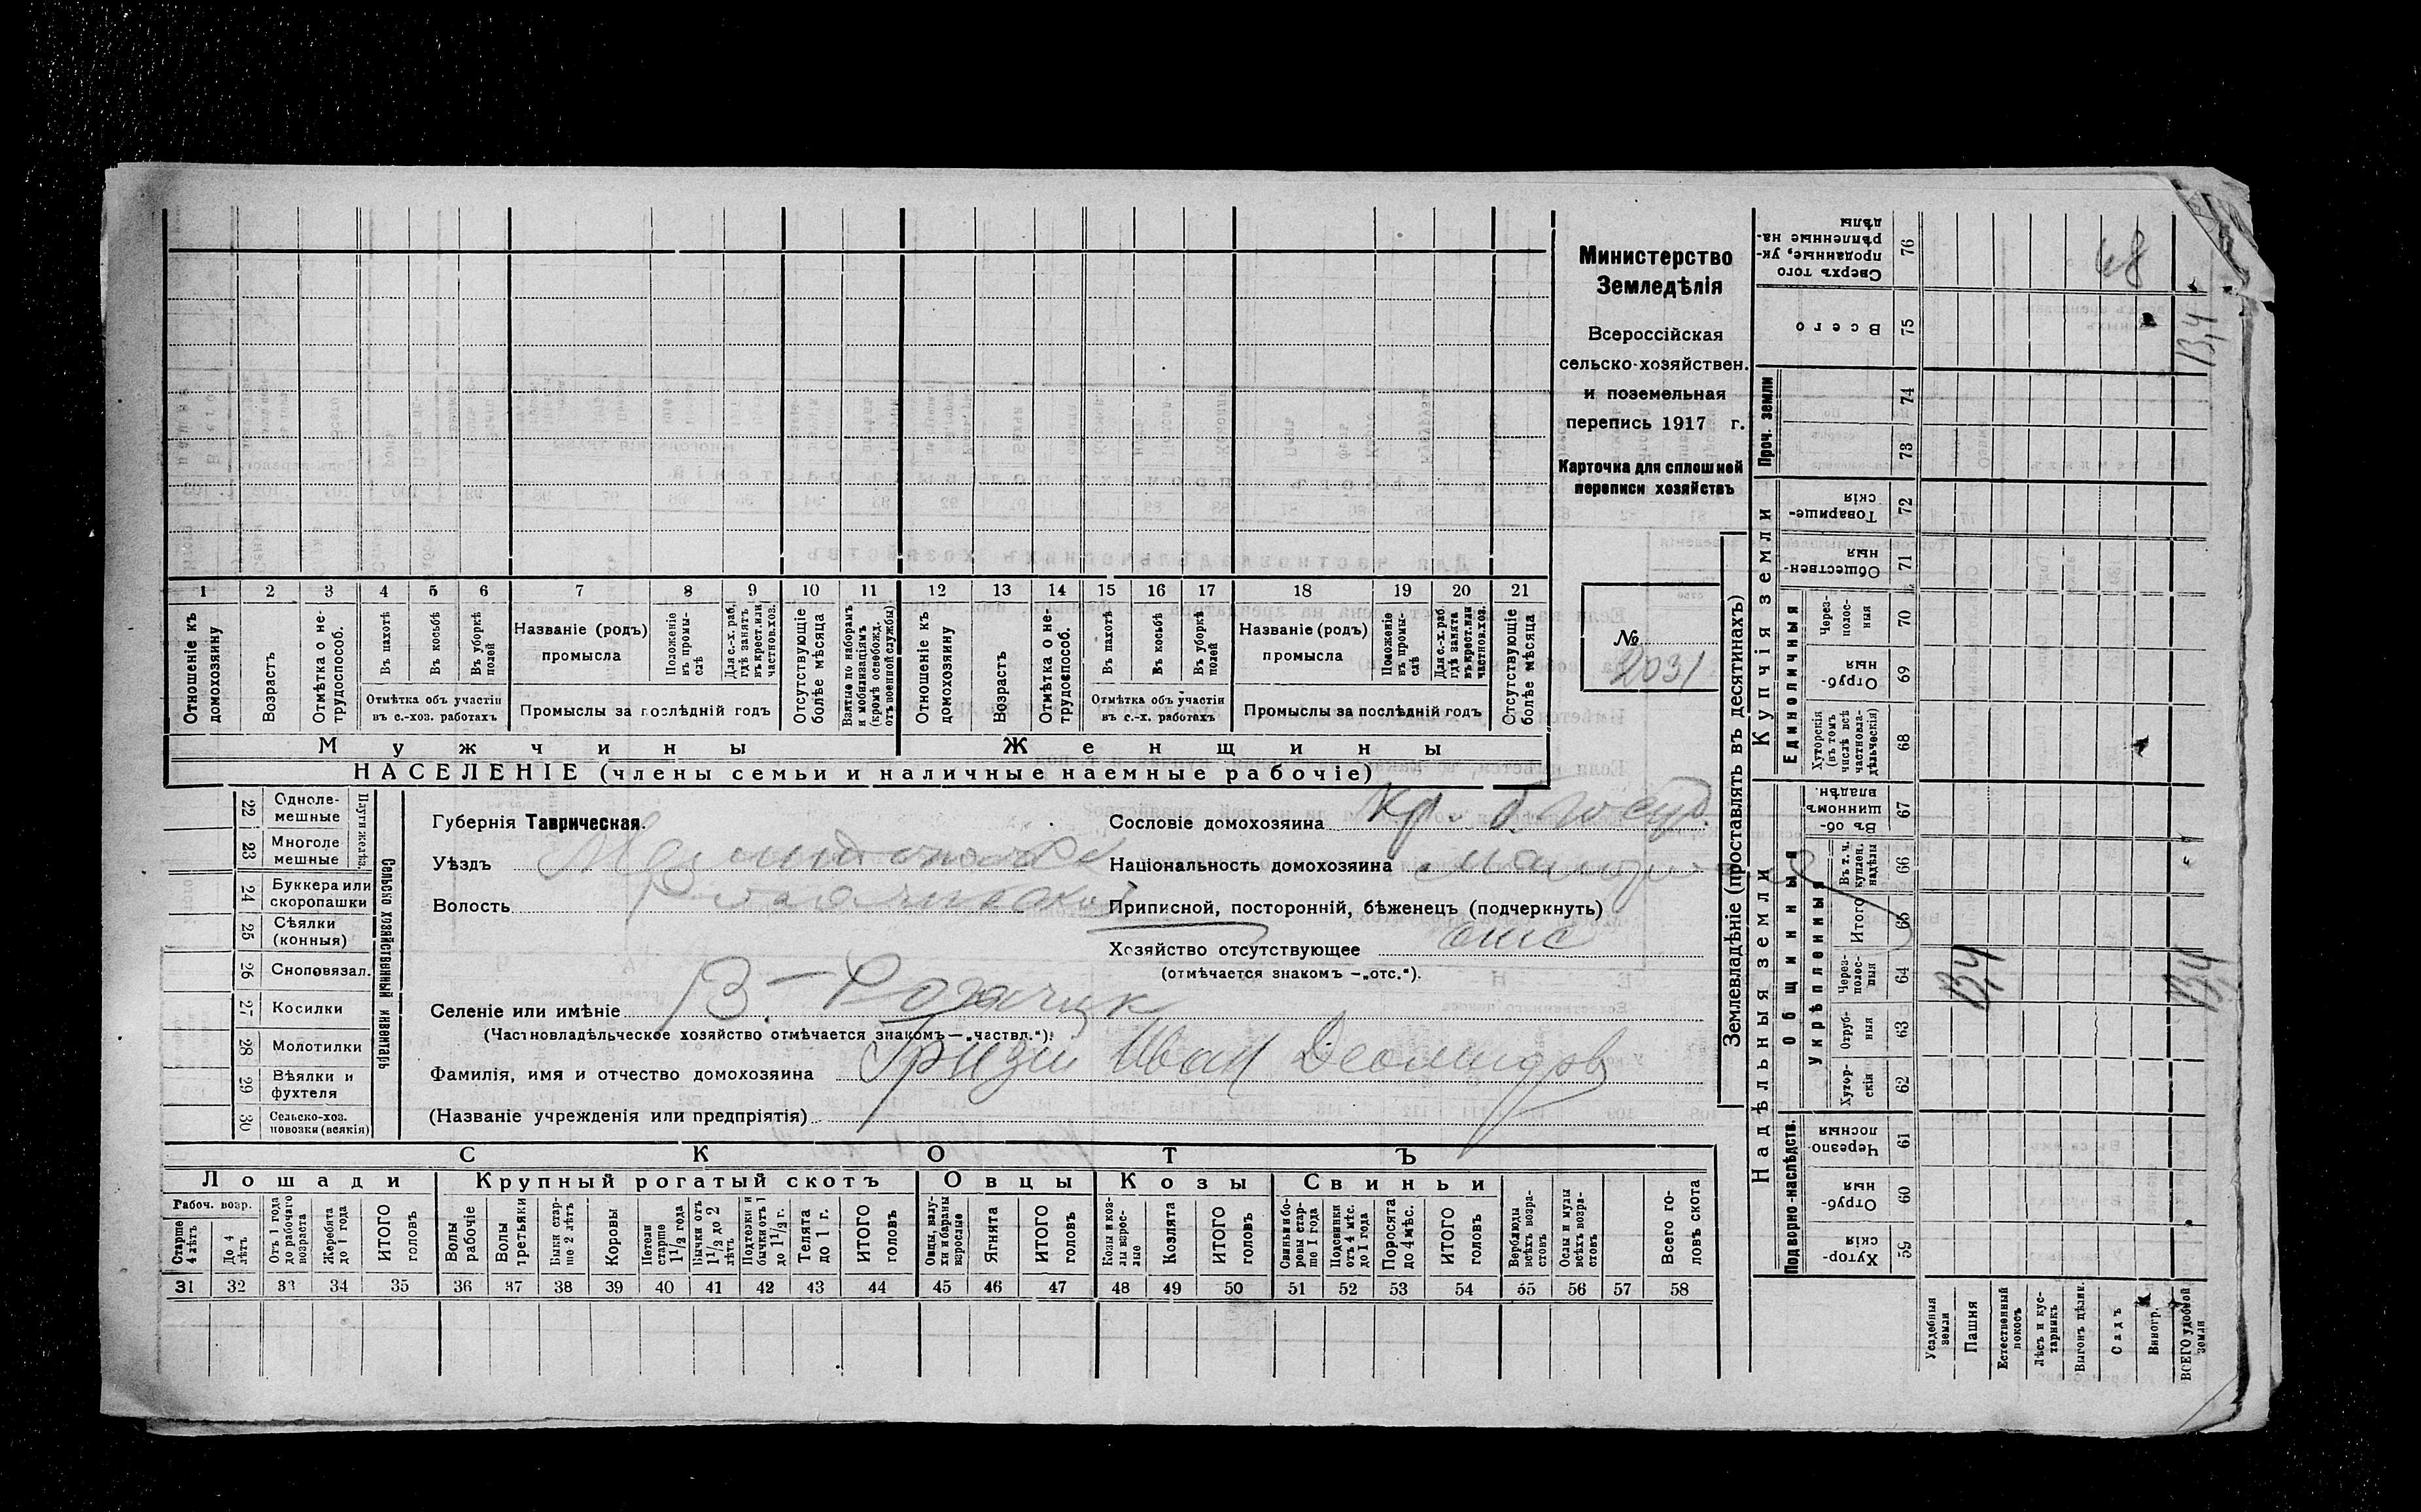 Министерство
Земледѣлія
Всероссійская
сельско-хозяйствен.
и поземельная
перепись 1917 г.
Карточка для сплошной
переписи хозяйствъ
№
2031
1 2 3 4 5 6 7 8 9 10 11 12 13 14 15 16 17 18 19 20 21
Отношеніе къ домохозяину
Возрастъ
Отмѣтка о не-трудоспособ.
Въ пахотѣ
Въ косьбѣ
Въ уборкѣ полей
Отмѣтка объ участіи въ с.-хоз. работахъ
Названіе (родъ) промысла
Положеніе въ промы-слѣ
Для с.-х. раб. гдѣ занятъ въ крест. или частнов. хоз.
Промыслы за послѣдній годъ
Отсутствующіе болѣе мѣсяца
Взятые по наборамъ и мобилизаціямъ (кромѣ освобожд. отъ военной службы)
Отношеніе къ домохозяину
Возрастъ
Отмѣтка о не-трудоспособ.
Въ пахотѣ
Въ косьбѣ
Въ уборкѣ полей
Отмѣтка объ участіи въ с.-х. работахъ
Названіе (родъ) промысла
Положеніе въ промы-слѣ
Для с.-х. раб. гдѣ занята въ крест. или частнов. хоз.
Промыслы за послѣдній годъ
Отсутствующіе болѣе мѣсяца
Мужчины
Женщины
НАСЕЛЕНІЕ (члены семьи и наличные наемные рабочіе)
Сельско хозяйственный инвентарь
Плуги желѣз.
22 Одноле-мешные
23 Многоле мешные
24 Буккера или скоропашки
25 Сѣялки (конныя)
26 Сноповязал.
27 Косилки
28 Молотилки
29 Вѣялки и фухтеля
30 Сельско-хоз. повозки (всякія)
Губернія Таврическая.
Уѣздъ
Волость
Селеніе или имѣніе В.-Рогачик
(Частновладѣльческое хозяйство отмѣчается знакомъ—„частвл.“).
Фамилія, имя и отчество домохозяина Гризій Иван
(Названіе учрежденія или предпріятія)
Сословіе домохозяина Кр. б. госуд.
Національность домохозяина малор
Приписной, посторонній, бѣженецъ (подчеркнуть)
Хозяйство отсутствующее отс
(отмѣчается знакомъ —„отс.“).
СКОТЪ
Лошади
Крупный рогатый скотъ
Овцы
Козы
Свиньи
Рабоч. возр.
Старше 4 лѣтъ
До 4 лѣтъ
Отъ 1 года до рабочаго возраста
Жеребята до 1 года
ИТОГО головъ
Волы рабочіе
Волы третьяки
Быки стар-ше 2 лѣтъ
Коровы
Нетели старше 1 1/2 года
Бычки отъ 1 1/2 до 2 лѣтъ
Подтелки и бычки отъ 1 до 1 1/2 г.
Телята до 1 г.
ИТОГО головъ
Овцы, валу-хи и бараны взрослые
Ягнята
ИТОГО головъ
Козы и коз-лы взрос-лые
Козлята
ИТОГО головъ
Свиньи и бо-ровы стар-ше 1 года
Подсвинки отъ 4 мѣс. до 1 года
Поросята до 4 мѣс.
ИТОГО головъ
Верблюды всѣхъ возра-стовъ
Ослы и мулы всѣхъ возра-стовъ
Всего го-ловъ скота
31 32 33 34 35 36 37 38 39 40 41 42 43 44 45 46 47 48 49 50 51 52 53 54 55 56 57 58
Землевладѣніе (проставлять въ десятинахъ)
Надѣльныя земли
Купчія земли
Проч. земли
Подворно-наслѣдств.
Общинныя
Укрѣпленныя
Единоличныя
Сверхъ того проданные, ук-рѣпленные на-дѣлы 76
Всего 75
74
73
Товарище-скія 72
Обществен-ныя 71
Через-полос-ныя 70
Отруб-ныя 69
Хуторскія (въ томъ числѣ всѣ частновла-дѣльческія) 68
Въ об-щинномъ владѣн. 67
Въ т. ч. куплен. надѣлы 66
Итого 65
Через-полос-ныя 64
Отруб-ныя 63
Хутор-скія 62
Черезпо-лосныя 61
Отруб-ныя 60
Хутор-скія 59
Усадебныя земли
Пашня
Естественный покосъ
Лѣсъ и кус-тарникъ
Выгонъ цѣлик.
Садъ
Виногр.
ВСЕГО удобной земли
68
13,4
13,4
13,4